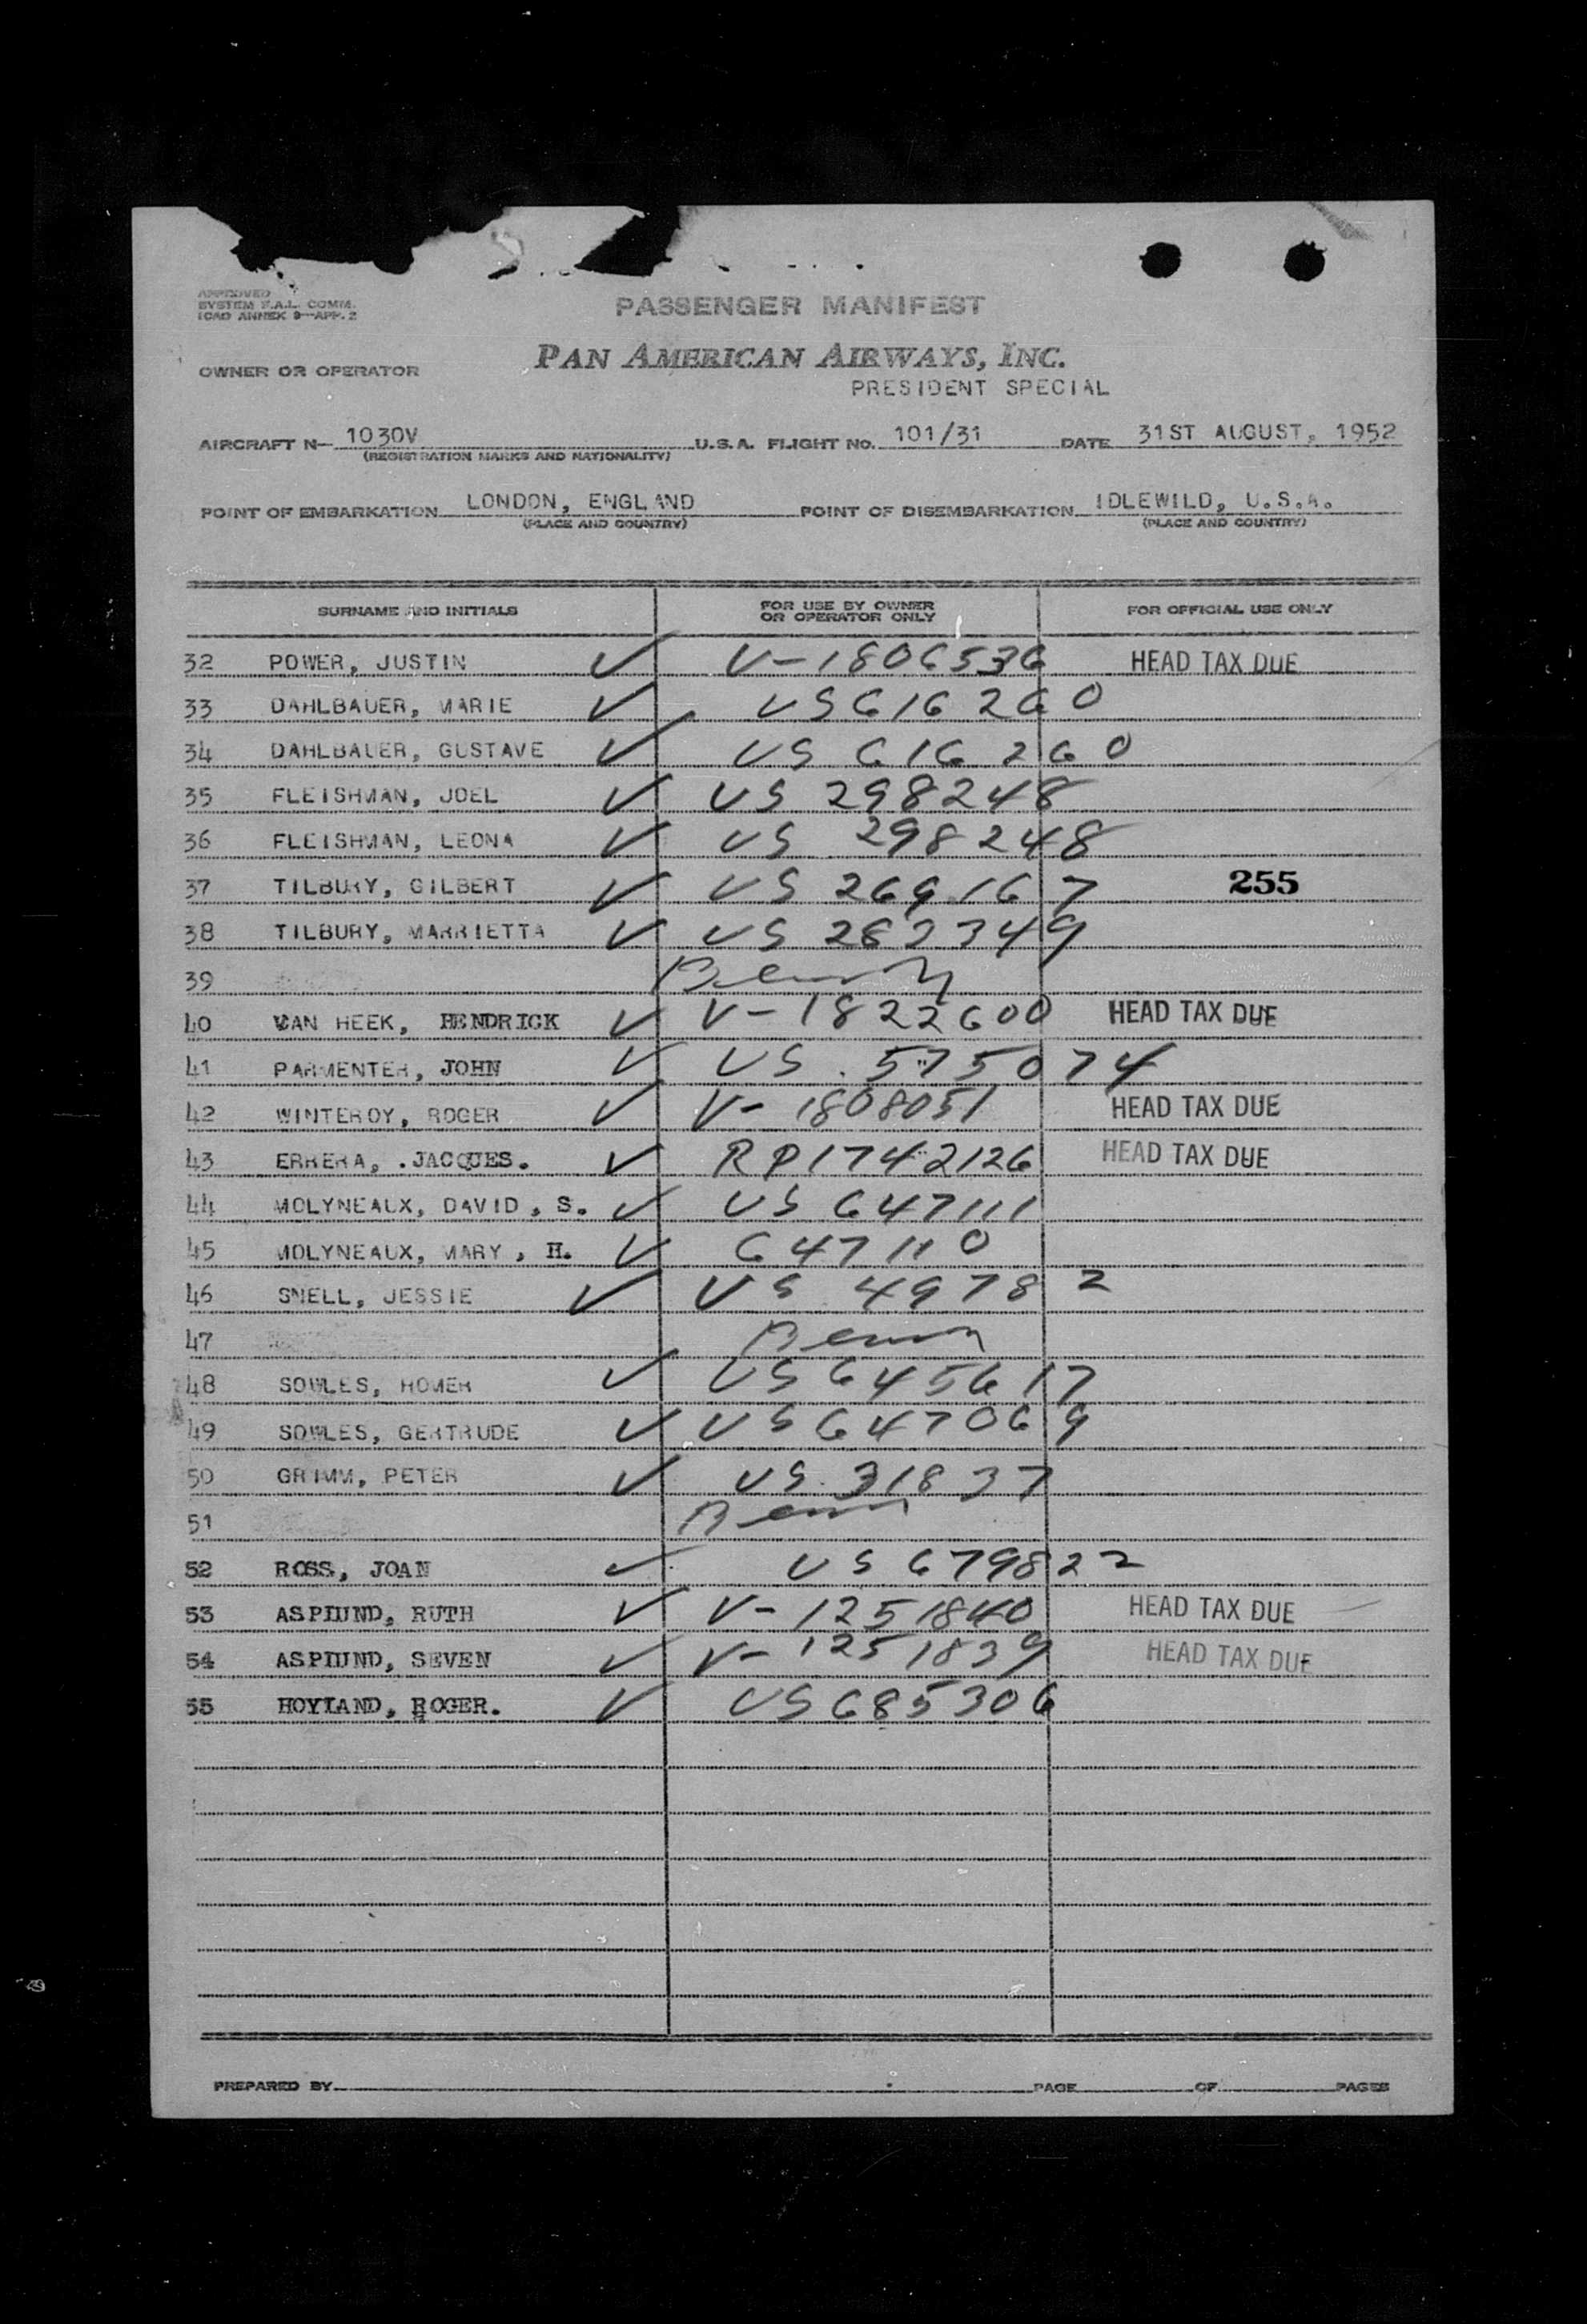 APPROVED
SYSTEM F.A.L. COMM.
ICAO ANNEX 9—APP. 2
PASSENGER MANIFEST
OWNER OR OPERATOR PAN AMERICAN AIRWAYS, INC.
PRESIDENT SPECIAL
AIRCRAFT N— 1030V U.S.A. FLIGHT NO. 101/31 DATE 31ST AUGUST, 1952
(REGISTRATION MARKS AND NATIONALITY)
POINT OF EMBARKATION LONDON, ENGLAND POINT OF DISEMBARKATION IDLEWILD, U.S.A.
(PLACE AND COUNTRY) (PLACE AND COUNTRY)
SURNAME AND INITIALS FOR USE BY OWNER OR OPERATOR ONLY FOR OFFICIAL USE ONLY
32 POWER, JUSTIN ✓ V-1806536 HEAD TAX DUE
33 DAHLBAUER, MARIE ✓ US 616260
34 DAHLBAUER, GUSTAVE ✓ US 616260
35 FLEISHMAN, JOEL ✓ US 298248
36 FLEISHMAN, LEONA ✓ US 298248
37 TILBURY, GILBERT ✓ US 269167 255
38 TILBURY, MARRIETTA ✓ US 282349
39
40 VAN HEEK, HENDRICK ✓ V-1822600 HEAD TAX DUE
41 PARMENTER, JOHN ✓ US 575074
42 WINTEROY, ROGER ✓ V-1808051 HEAD TAX DUE
43 ERRERA, .JACQUES. ✓ RP1742126 HEAD TAX DUE
44 MOLYNEAUX, DAVID, S. ✓ US 647111
45 MOLYNEAUX, MARY, H. ✓ 647110
46 SNELL, JESSIE ✓ US 49782
47
48 SOWLES, HOMER ✓ US 645617
49 SOWLES, GERTRUDE ✓ US 647069
50 GRIMM, PETER ✓ US 31837
51
52 ROSS, JOAN ✓ US 679822
53 ASPLUND, RUTH ✓ V-1251840 HEAD TAX DUE
54 ASPLUND, SEVEN ✓ V-1251839 HEAD TAX DUE
55 HOYLAND, ROGER. ✓ US 685306
PREPARED BY PAGE OF PAGES